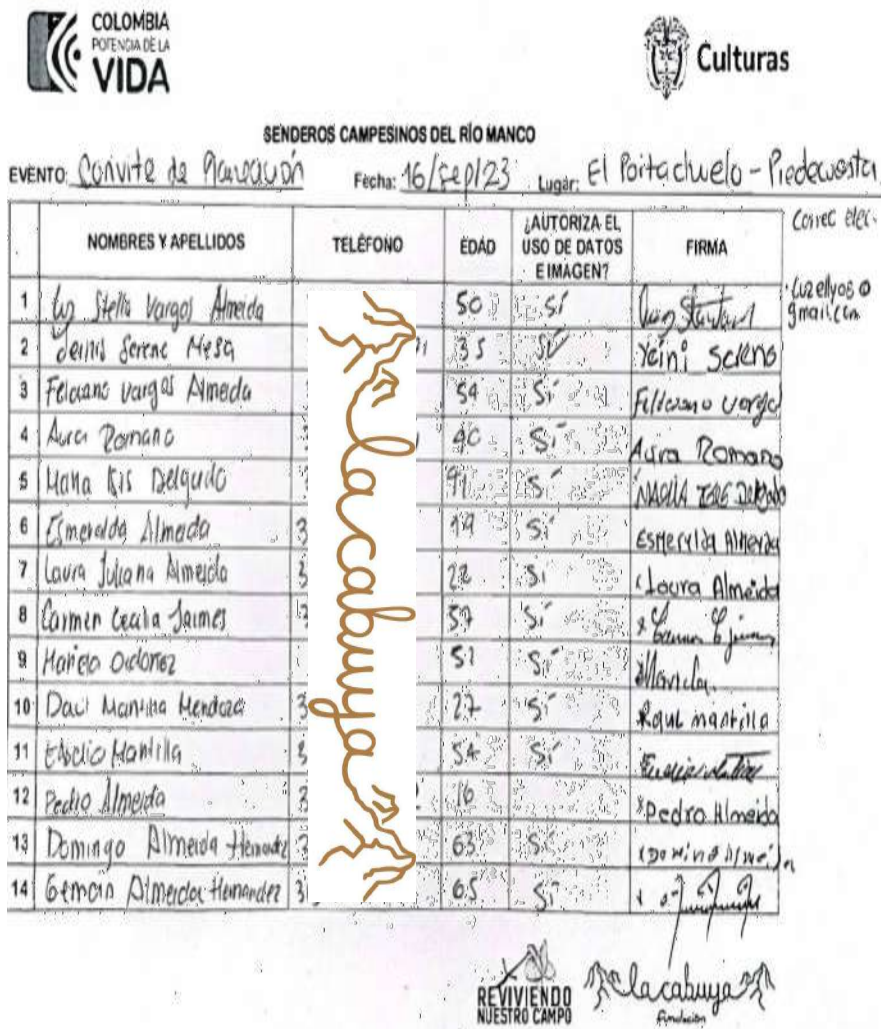 COLOMBIA
POTENCIA DE LA
VIDA
Culturas
SENDEROS CAMPESINOS DEL RÍO MANCO
EVENTO: Convite de Planeación Fecha: 16/sep/23 Lugar: El Portachuelo - Piedecuesta
NOMBRES Y APELLIDOS TELÉFONO EDAD ¿AUTORIZA EL USO DE DATOS E IMAGEN? FIRMA Correc elec.
1 Luz Stella Vargas Almeida 50 Sí luzellyos@gmail.com
2 Serene Mesa 35 Sí Yeini Sereno
3 Feliciano Vargas Almeida 54 Sí Feliciano Vargas
4 Aura Romano 40 Sí Aura Romano
5 Maria Iris Delgado 91 Sí Delgado
6 Esmeralda Almeida 3 19 Sí Esmeralda Almeida
7 Laura Juliana Almeida 3 22 Sí Laura Almeida
8 Carmen Cecilia Jaimes 57 Sí
9 Mariela Ordoñez 51 Sí Mariela
10 Mantilla Mendoza 3 27 Sí Raul mantilla
11 Mantilla 3 54 Sí
12 Pedro Almeida 3 16 Pedro Almeida
13 Domingo Almeida Hernandez 3 63 Sí
14 German Almeida Hernandez 3 65 Sí
la cabuya
REVIVIENDO
NUESTRO CAMPO
la cabuya
Fundación